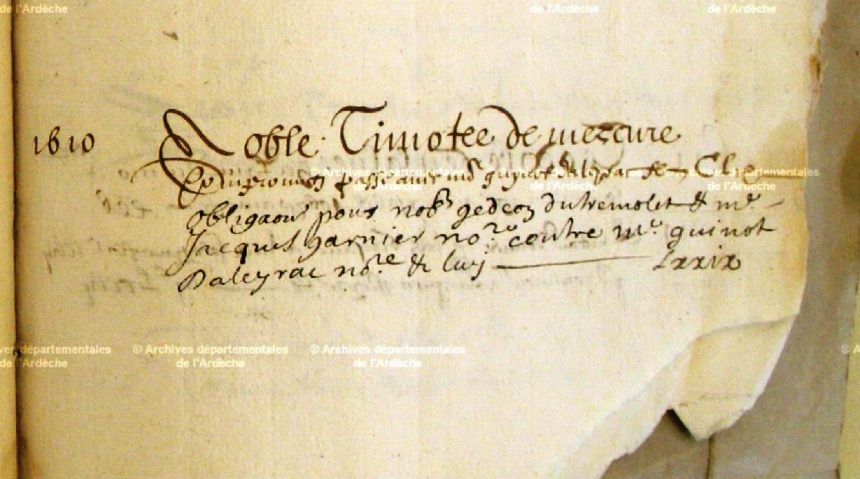 de l'Ardèche de l'Ardèche de l'Ardèche
1610 Noble Timotee de mezeure
© Archives départementales
obligaon pour nob gedeon dutremolet & mr
Jacques garnier nore contre mr guinot
Daleyrac nore & luy lxxix
© Archives départementales © Archives départementales © Archives départementales
de l'Ardèche de l'Ardèche de l'Ardèche